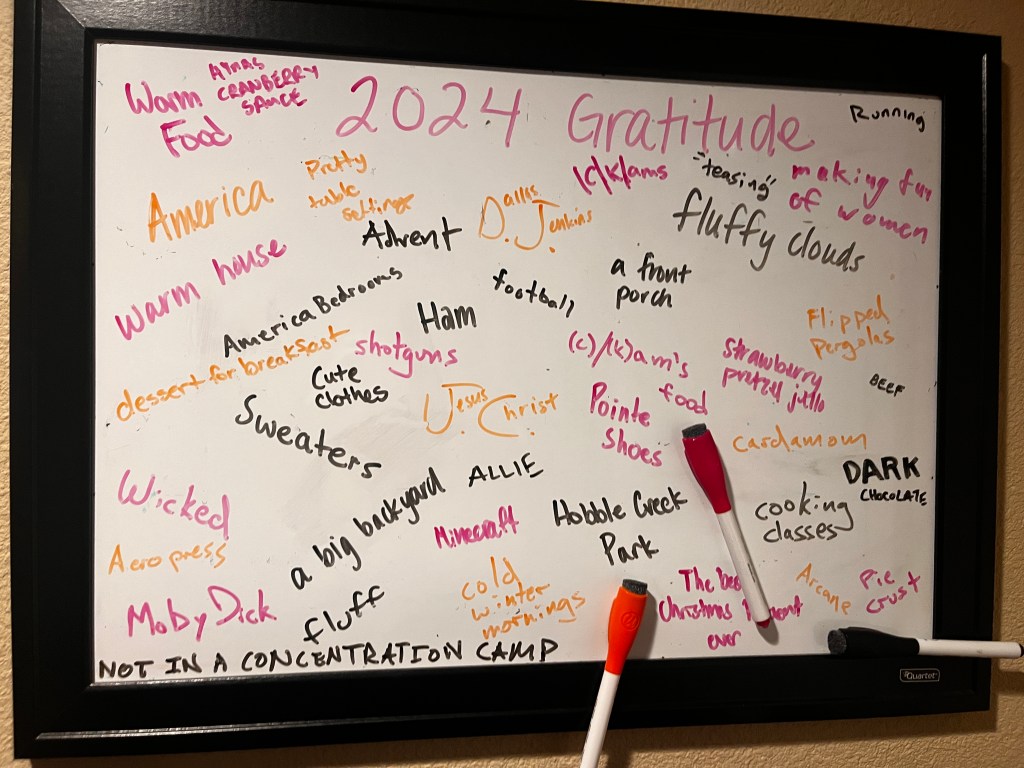 Warm
Food
CRANBERRY
SAUCE
2024 Gratitude
Running
America
Pretty
table
settings
Advent
Dallis
Jenkins
(c/k)ams
"teasing"
making fun
of women
fluffy clouds
warm house
America Bedrooms
football
a front
porch
Ham
Flipped
pergolas
dessert for breakfast
shotguns
(c)/(k)am's
food
strawberry
pretzel jello
BEEF
Cute
clothes
Jesus
Christ
Pointe
Shoes
cardamom
Sweaters
ALLIE
DARK
CHOCOLATE
Wicked
a big backyard
Minecraft
Hobble Creek
Park
cooking
classes
Aeropress
Moby Dick
fluff
cold
winter
mornings
The
Christmas
ever
Arcane
Pie
crust
NOT IN A CONCENTRATION CAMP
Quartet